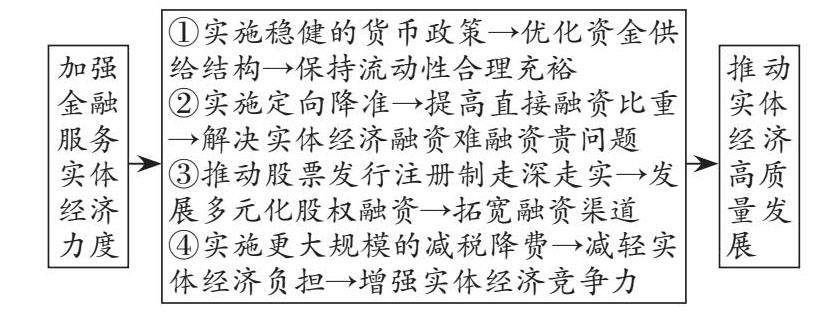 加强
金融
服务
实体
经济
力度
①实施稳健的货币政策→优化资金供
给结构→保持流动性合理充裕
②实施定向降准→提高直接融资比重
→解决实体经济融资难融资贵问题
③推动股票发行注册制走深走实→发
展多元化股权融资→拓宽融资渠道
④实施更大规模的减税降费→减轻实
体经济负担→增强实体经济竞争力
推动
实体
经济
高质
量发
展